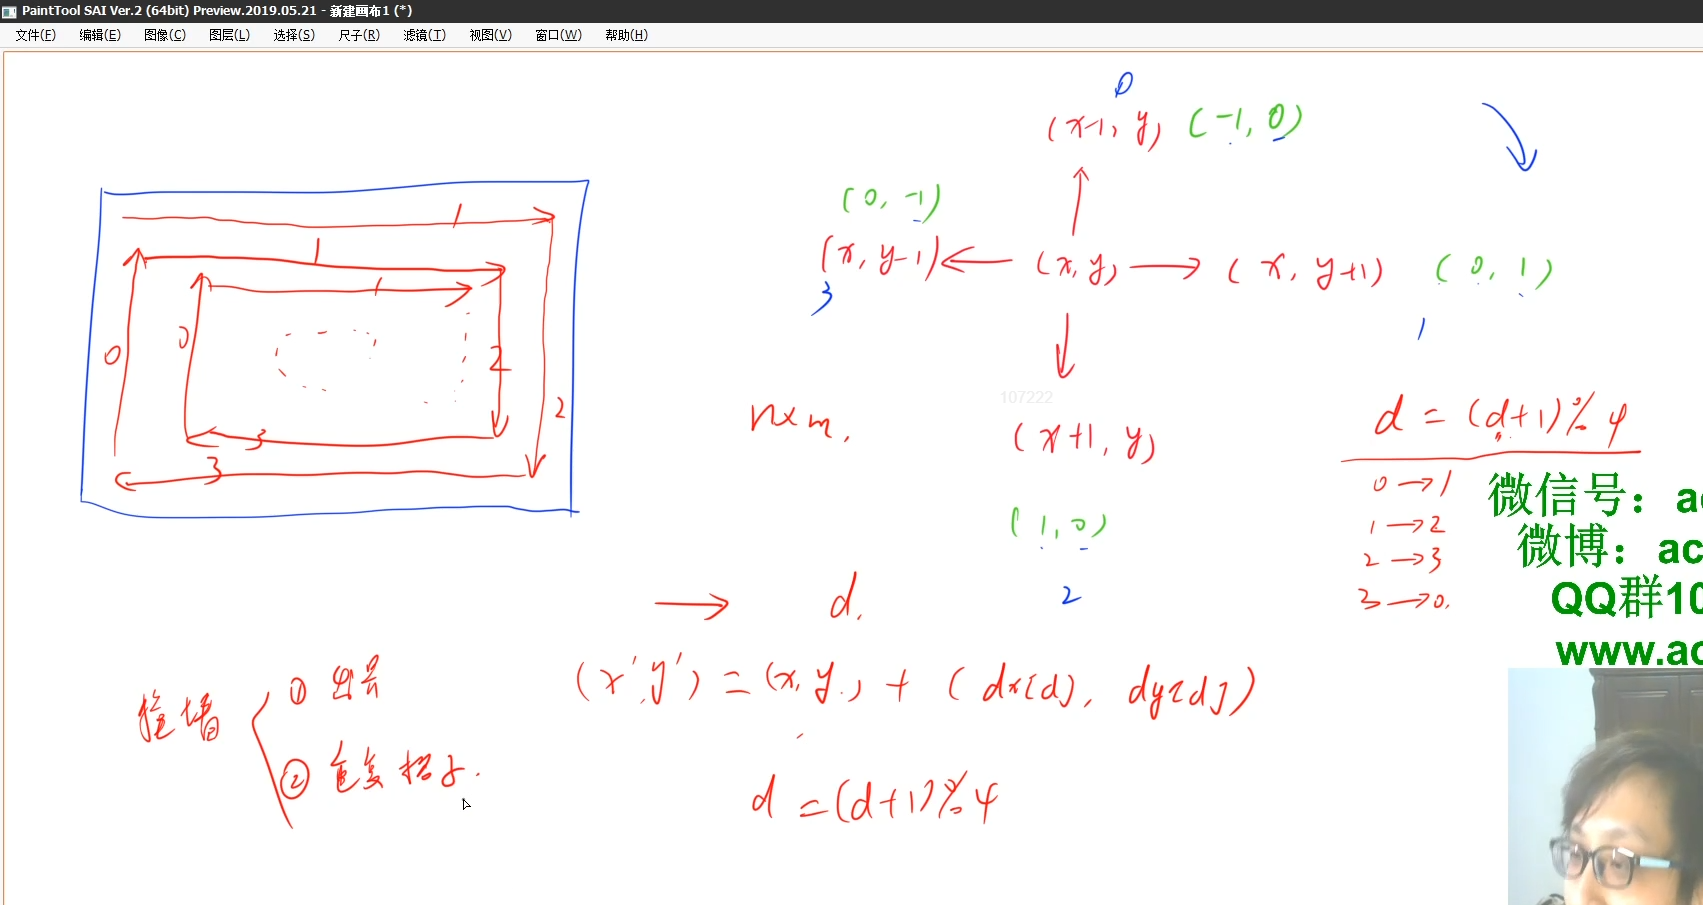 PaintTool SAI Ver.2 (64bit) Preview.2019.05.21 - 新建画布1 (*)
文件(F) 编辑(E) 图像(C) 图层(L) 选择(S) 尺子(R) 滤镜(T) 视图(V) 窗口(W) 帮助(H)
0
(x-1, y) (-1, 0)
(0, -1)
(x, y-1) ← (x, y) → (x, y+1) (0, 1)
3
1
1
1
1
0
0
2
2
3
3
107222
n×m.
(x+1, y)
(1, 0)
2
d = (d+1)%4
0→1
1→2
2→3
3→0.
微信号：ac
微博：ac
QQ群10
www.ac
→ d.
(x', y') = (x, y) + (dx[d], dy[d])
d = (d+1)%4
撞墙
① 出界
② 重复格子.